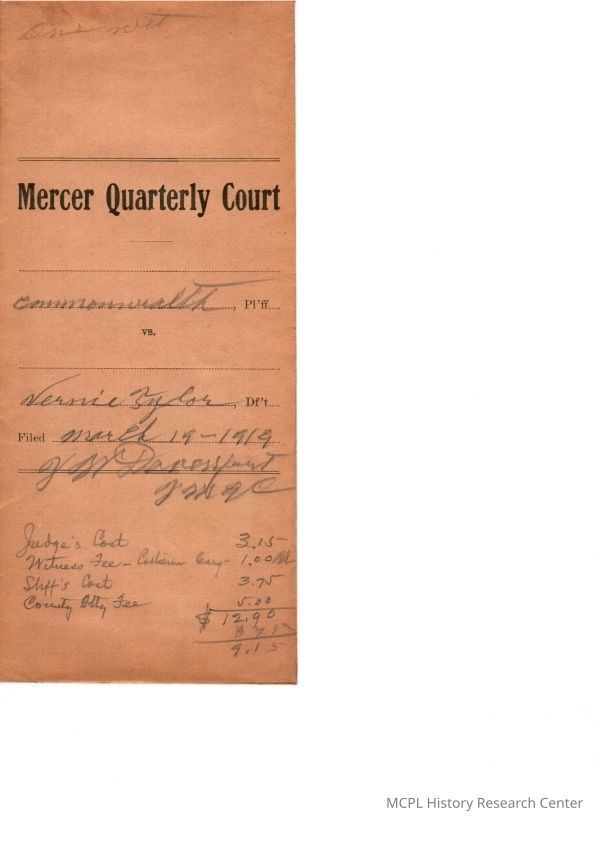 One wit
Mercer Quarterly Court
commonwealth, Pl'ff.
vs.
Vernie Tylor, Df't.
Filed March 19-1919
J W Davenport
Judge's Cost 3.15
Witness Fee - 1.00
Shff's Cost 3.75
County Atty Fee 5.00
$ 12.90
3 75
9.15
MCPL History Research Center